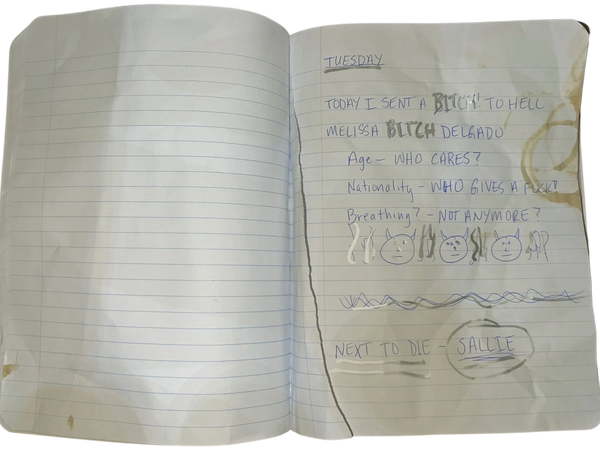 TUESDAY
TODAY I SENT A BITCH! TO HELL
MELISSA BITCH DELGADO
Age - WHO CARES?
Nationality - WHO GIVES A FUCK?
Breathing? - NOT ANYMORE?
NEXT TO DIE - SALLIE